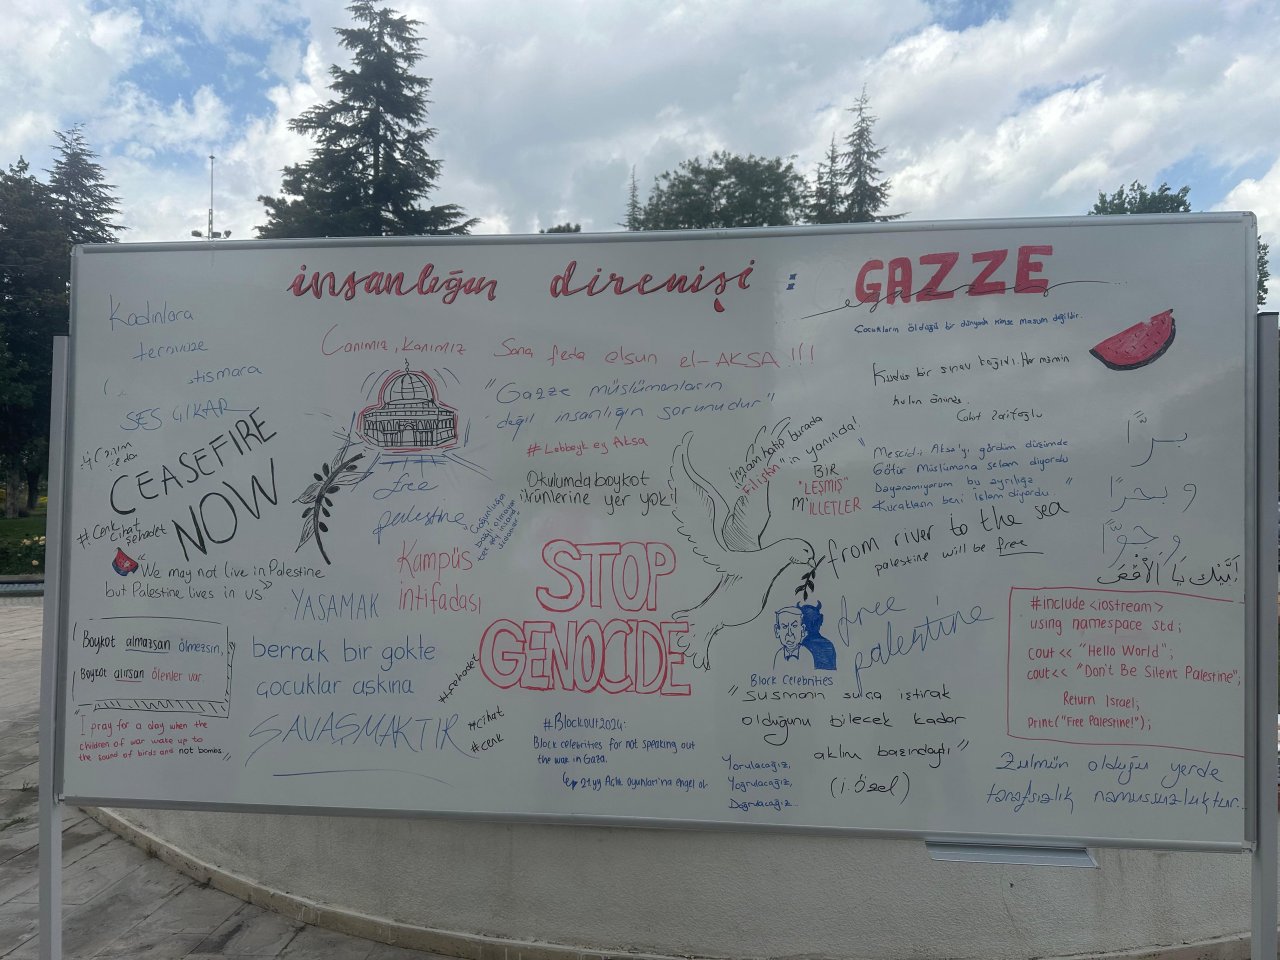 insanlığın direnişi : GAZZE
Çocukların öldüğü bir dünyada kimse masum değildir.
Kadınlara
tecavüze
istismara
SES ÇIKAR
CEASEFIRE
NOW
#Cenk
Cihat
Şehadet
"We may not live in Palestine
but Palestine lives in us"
Boykot almazsan ölmezsin,
Boykot alırsan ölenler var.
"I pray for a day when the
children of war wake up to
the sound of birds and not bombs."
Canımız, kanımız Sana feda olsun el-AKSA!!!
"Gazze müslümanların
değil insanlığın sorunudur"
#Lebbeyk ey Aksa
Okulumda boykot
ürünlerine yer yok!!
free
palestine
Kampüs
intifadası
YAŞAMAK
berrak bir gökte
çocuklar aşkına
SAVAŞMAKTIR
#şehadet
#cihat
#cenk
STOP
GENOCIDE
#Blockout2024:
Block celebrities for not speaking out
the war in Gaza.
21.yy Açlık oyunları'na engel ol
imam hatip burada
Filistin'in yanında!
BİR
"LEŞMİŞ"
M'İLLETLER
Kudüs bir sınav kağıdı. Her mümin
kulun önünde.
Cahit Zarifoğlu
"Mescid-i Aksa'yı gördüm düşümde
Götür Müslümana selam diyordu
Dayanamıyorum bu ayrılığa
Kucakların beni İslam diyordu."
from river to the sea
palestine will be free
free
palestine
Block Celebrities
"susmanın suça iştirak
olduğunu bilecek kadar
aklım başındaydı"
(İ. Özel)
Yorulacağız,
Yoğrulacağız,
Doğrulacağız...
برًّا
و بحرًا
و جوًّا
#include <iostream>
using namespace std;
cout << "Hello World";
cout << "Don't Be Silent Palestine";
Return Israel;
Print("Free Palestine!");
Zulmün olduğu yerde
tarafsızlık namussuzluktur.